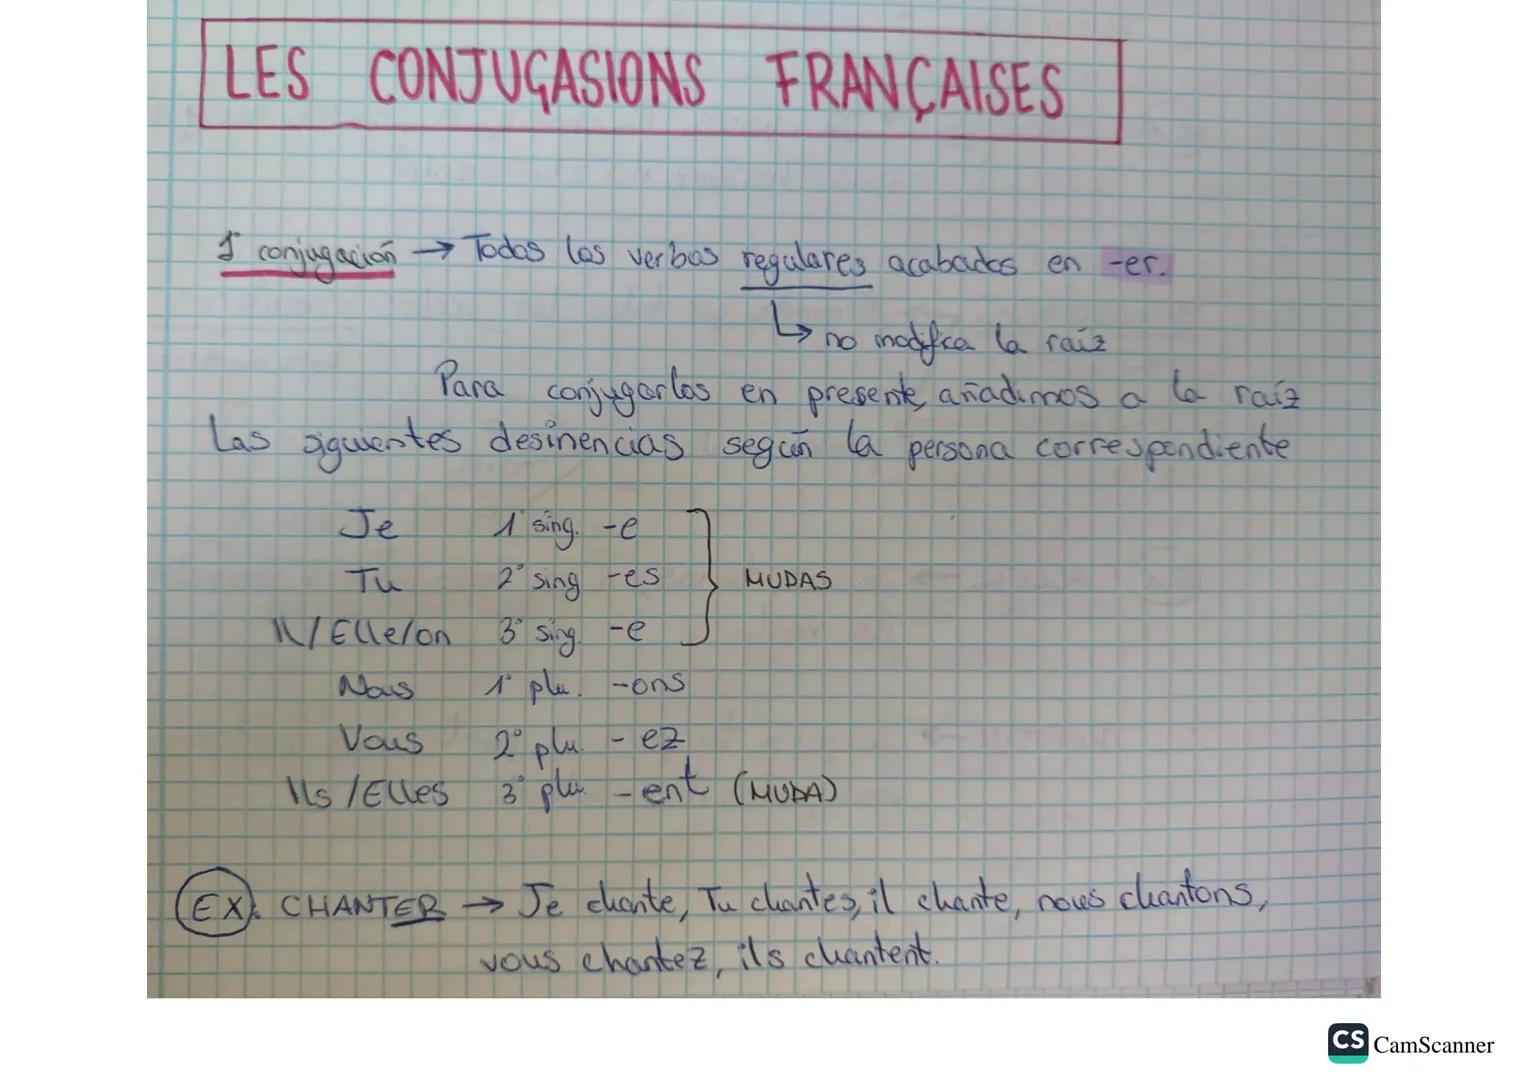 LES CONJUGASIONS FRANÇAISES
1ª conjugación → Todos los verbos regulares acabados en -er.
↳ no modifica la raíz
Para conjugarlos en presente, añadimos a la raíz
las siguientes desinencias según la persona correspondiente
Je 1ª sing. -e
Tu 2ª sing -es MUDAS
Il/Elle/on 3ª sing. -e
Nous 1ª plu. -ons
Vous 2ª plu. -ez
Ils/Elles 3ª plu. -ent (MUDA)
EX: CHANTER → Je chante, Tu chantes, il chante, nous chantons,
vous chantez, ils chantent.
CS CamScanner